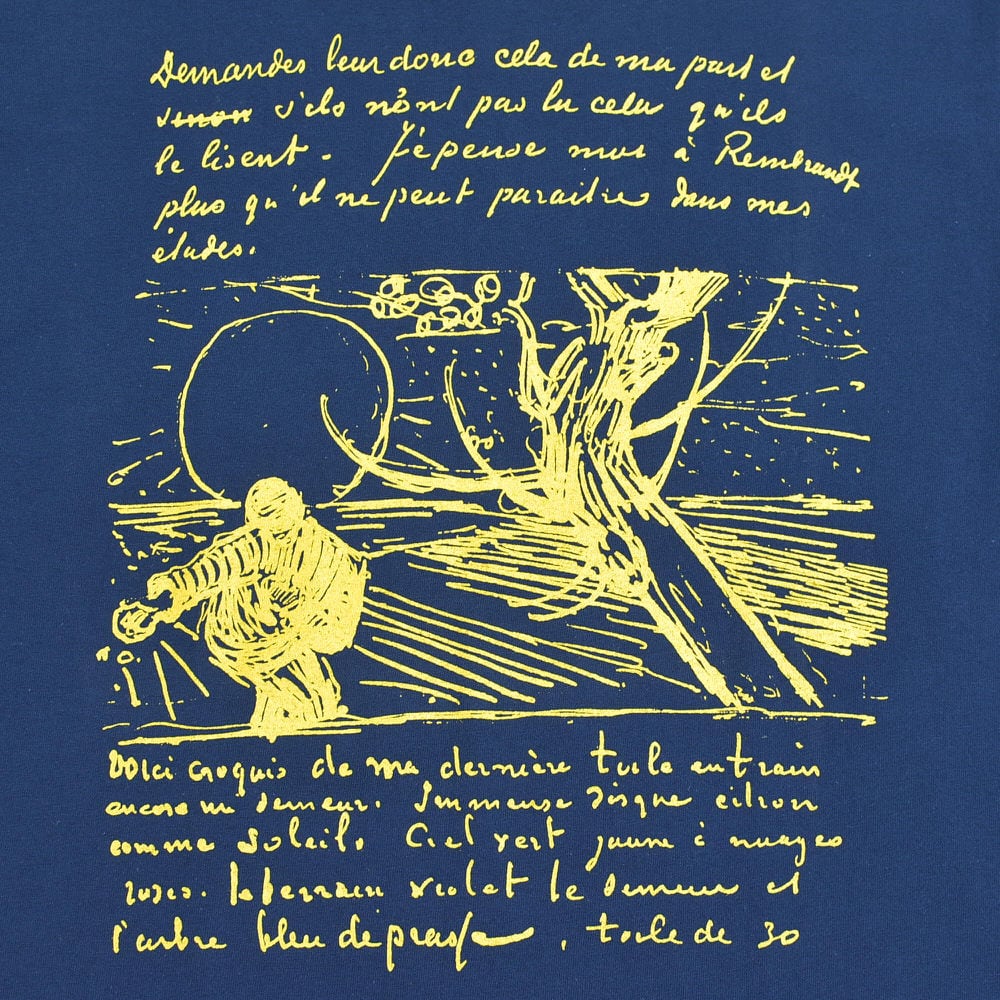 Demandes leur donc cela de ma part et
sinon s'ils n'ont pas lu cela qu'ils
le lisent. Je pense moi à Rembrandt
plus qu'il ne peut paraitre dans mes
études.
Voici croquis de ma dernière toile en train
encore un semeur. Immense disque citron
comme soleil. Ciel vert jaune à nuages
roses. le terrain violet le semeur et
l'arbre bleu de prusse, toile de 30